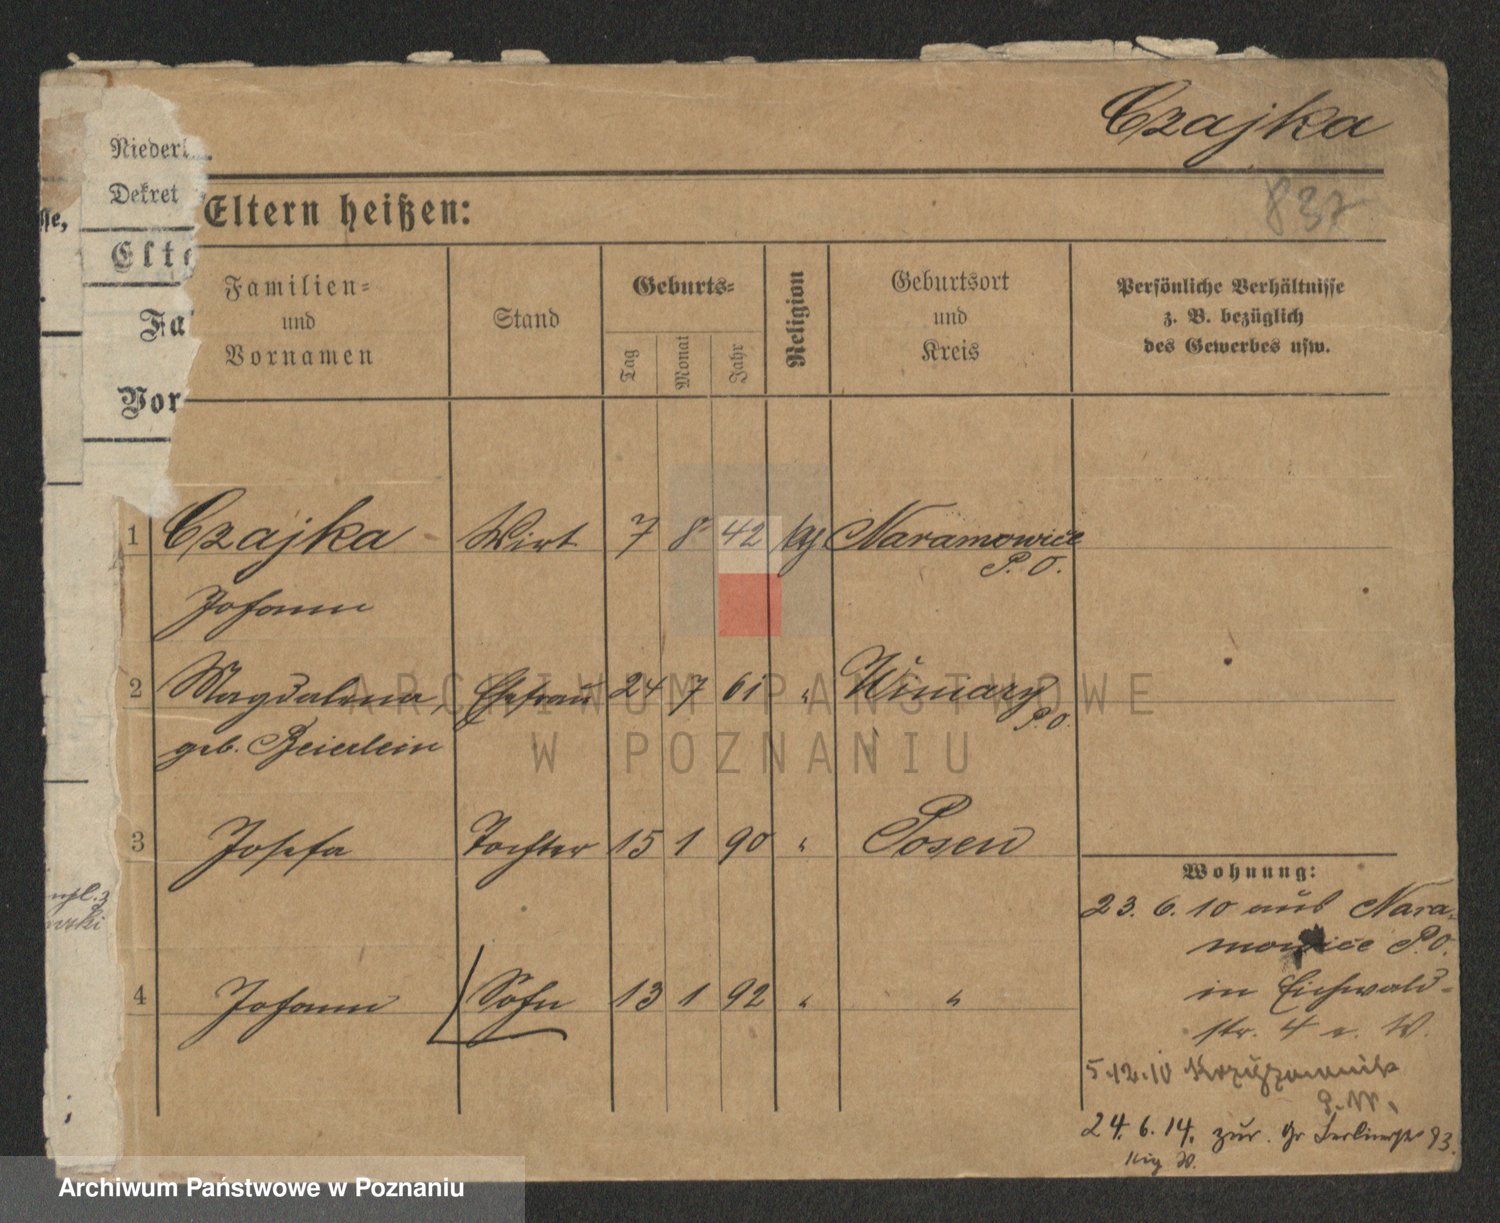 Czajka
837
Niederl
Dekret
sse,
Eltern heißen:
Elte
Familien=
und
Vornamen
Stand
Geburts=
Tag
Monat
Jahr
Religion
Geburtsort
und
Kreis
Persönliche Verhältnisse
z. B. bezüglich
des Gewerbes usw.
Fa
Vor
1 Czajka Wirt 7 8 42 kg Naramowice
P. O.
Johann
2 Magdalena, Ehefrau 24 7 61 " Winiary
P. O.
geb. Beierlein
3 Josefa Tochter 15 1 90 " Posen
4 Johann Sohn 13 1 92 " "
Wohnung:
23. 6. 10 aus Nara-
mowice P. O.
in Eichwald-
str. 4 e. W.
5.12.10
24. 6. 14. zur. Gr Berlinerstr 93.
ARCHIWUM PAŃSTWOWE
W POZNANIU
Archiwum Państwowe w Poznaniu